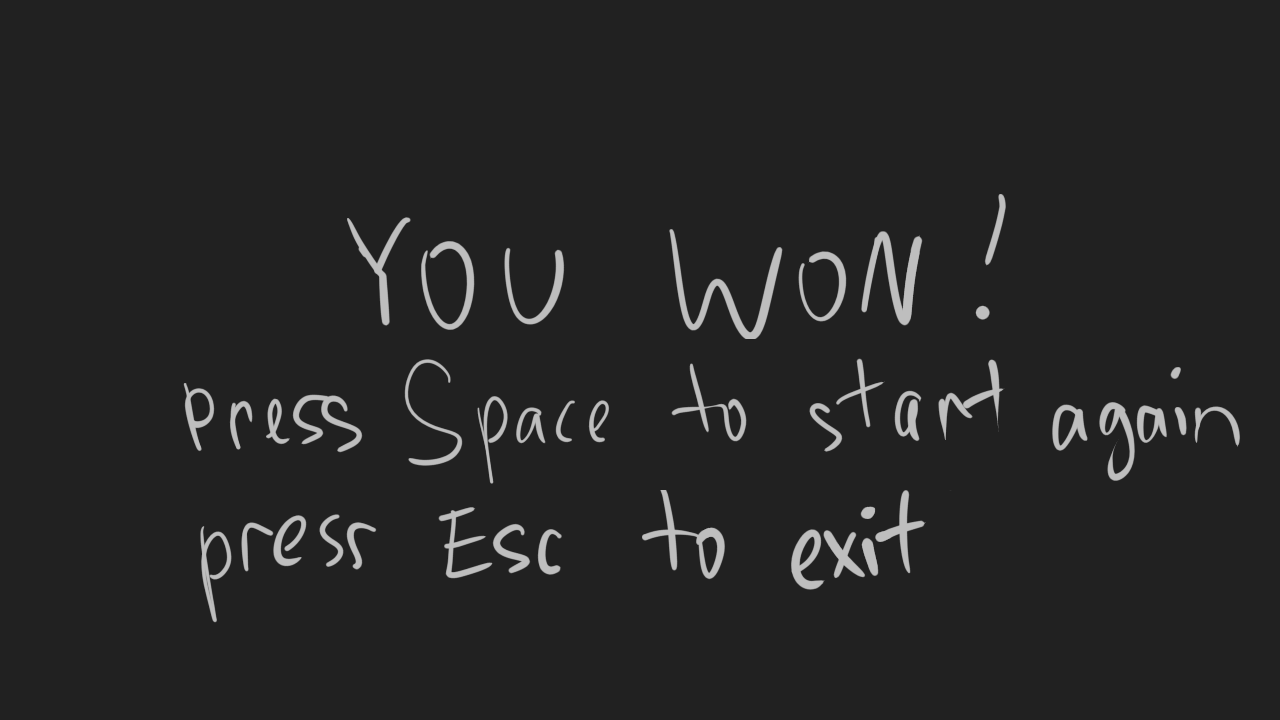 YOU WON!
press Space to start again
press Esc to exit